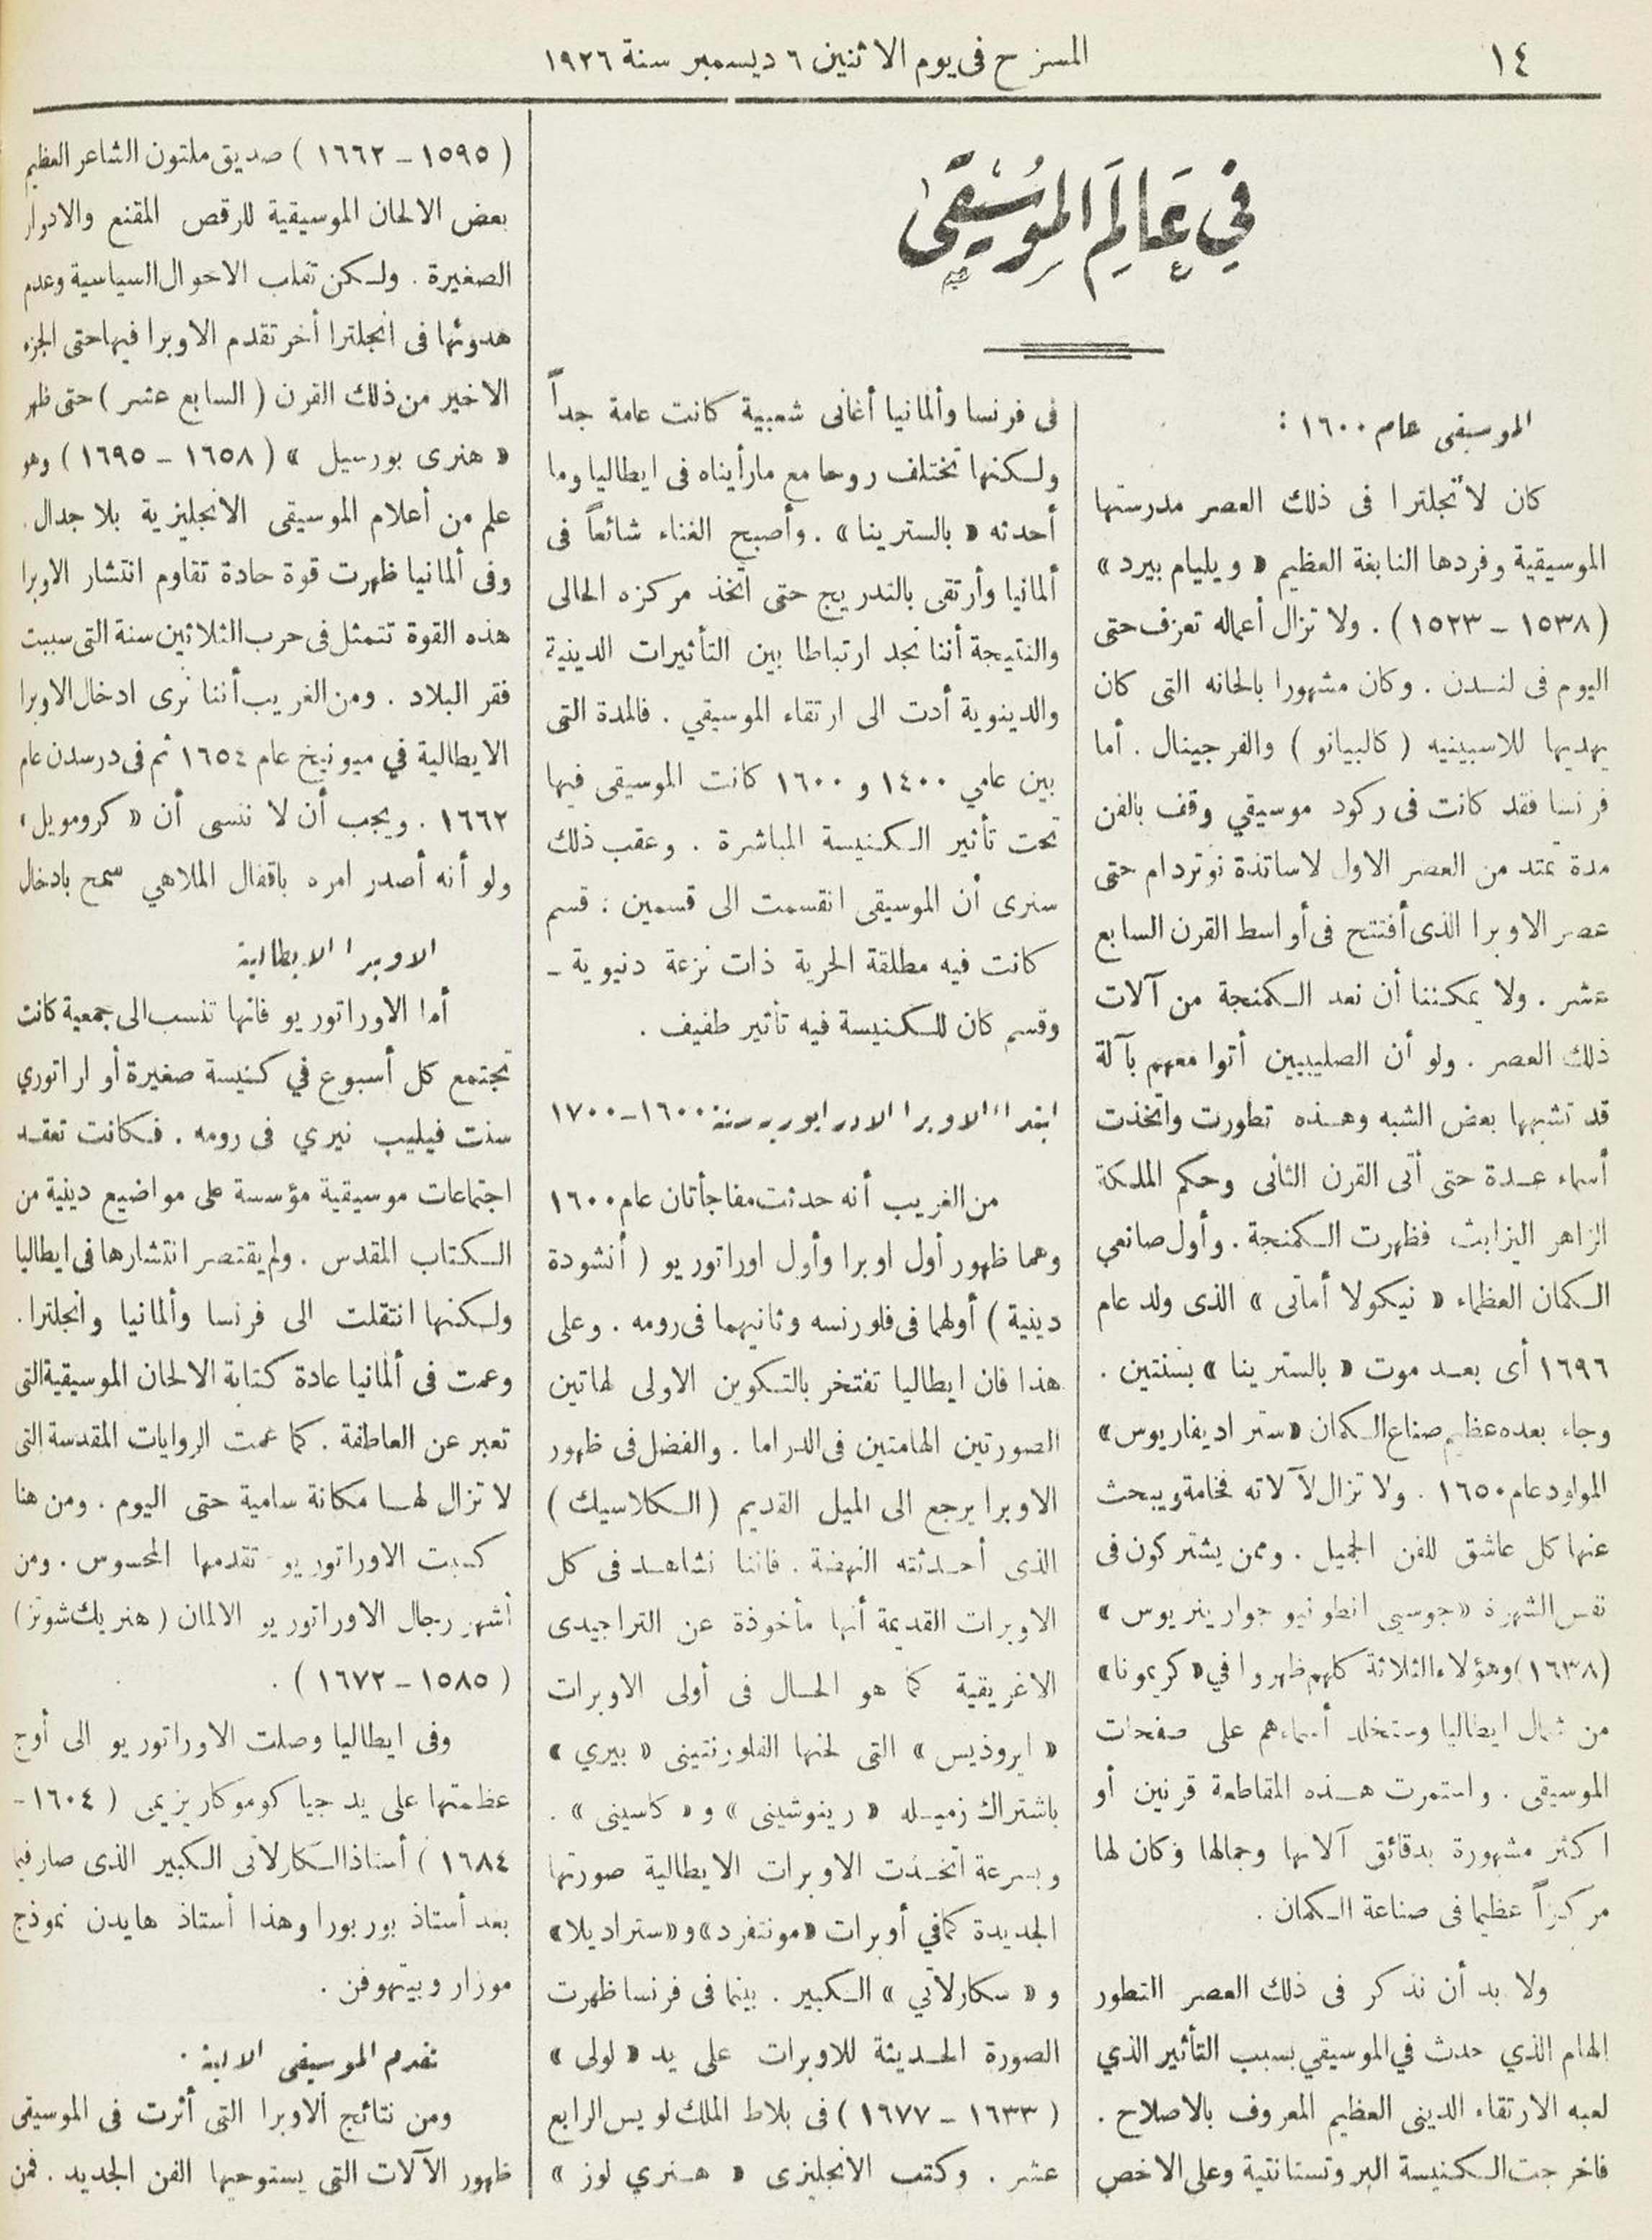 ١٤
المسرح في يوم الاثنين ٦ ديسمبر سنة ١٩٢٦
في عالم الموسيقى
الموسيقى عام ١٦٠٠ :
كان لانجلترا فى ذلك العصر مدرستها
الموسيقية وفردها النابغة العظيم « ويليام بيرد »
( ١٥٣٨ – ١٥٢٣ ) . ولا تزال أعماله تعزف حتى
اليوم فى لندن . وكان مشهورا بالحانه التى كان
يهديها للاسبينيه ( كالبيانو ) والفرجينال . أما
فرنسا فقد كانت فى ركود موسيقي وقف بالفن
مدة تمتد من العصر الاول لاساتذة نوتردام حتى
عصر الاوبرا الذى أفتتح فى أواسط القرن السابع
عشر . ولا يمكننا أن نعد الكمنجة من آلات
ذلك العصر . ولو أن الصليبيين أتوا معهم بآلة
قد تشبهها بعض الشبه وهذه تطورت واتخذت
أسماء عدة حتى أتى القرن الثانى وحكم الملكة
الزاهر اليزابث فظهرت الكمنجة . وأول صانعي
الكمان العظماء « نيكولا أماتى » الذى ولد عام
١٦٩٦ أى بعد موت « بالسترينا » بسنتين .
وجاء بعده عظيم صناع الكمان « ستراديفاريوس »
المولود عام ١٦٥٠ . ولا تزال لآلاته فخامة ويبحث
عنها كل عاشق للفن الجميل . وممن يشتركون فى
نفس الشهرة « جوسبى انطونيو جوارينريوس »
( ١٦٣٨ ) وهؤلاء الثلاثة كلهم ظهروا في « كريمونا »
من شمال ايطاليا وستخلد أسماءهم على صفحات
الموسيقى . واستمرت هذه المقاطعة قرنين أو
اكثر مشهورة بدقائق آلاتها وجمالها وكان لها
مركزاً عظيما فى صناعة الكمان .
ولا بد أن نذكر فى ذلك العصر التطور
الهام الذي حدث في الموسيقي بسبب التأثير الذي
لعبه الارتقاء الدينى العظيم المعروف بالاصلاح .
فاخرجت الكنيسة البروتستانتية وعلى الاخص
فى فرنسا وألمانيا أغانى شعبية كانت عامة جداً
ولكنها تختلف روحا مع مارأيناه فى ايطاليا وما
أحدثه « بالسترينا » . وأصبح الغناء شائعاً فى
ألمانيا وأرتقى بالتدريج حتى اتخذ مركزه الحالى
والنتيجة أننا نجد ارتباطا بين التأثيرات الدينية
والدينوية أدت الى ارتقاء الموسيقي . فالمدة التى
بين عامي ١٤٠٠ و ١٦٠٠ كانت الموسيقى فيها
تحت تأثير الكنيسة المباشرة . وعقب ذلك
سنرى أن الموسيقى انقسمت الى قسمين : قسم
كانت فيه مطلقة الحرية ذات نزعة دنيوية –
وقسم كان للكنيسة فيه تأثير طفيف .
ابتداء الاوبرا سنة ١٦٠٠–١٧٠٠
من الغريب أنه حدثت مفاجأتان عام ١٦٠٠
وهما ظهور أول اوبرا وأول اوراتوريو ( أنشودة
دينية ) أولهما فى فلورنسه وثانيهما فى رومه . وعلى
هذا فان ايطاليا تفتخر بالتكوين الاولى لهاتين
الصورتين الهامتين فى الدراما . والفضل فى ظهور
الاوبرا يرجع الى الميل القديم ( الكلاسيك )
الذى أحدثته النهضة . فاننا نشاهد فى كل
الاوبرات القديمة أنها مأخوذة عن التراجيدى
الاغريقية كما هو الحال فى أولى الاوبرات
« ايروذيس » التى لحنها الفلورنتينى « بيري »
باشتراك زميله « رينوشينى » و « كاسينى » .
وبسرعة اتخذت الاوبرات الايطالية صورتها
الجديدة كمافي أوبرات « مونتفرد » و « ستراديلا »
و « سكارلاتي » الكبير . بينما فى فرنسا ظهرت
الصورة الحديثة للاوبرات على يد « لولى »
( ١٦٣٣ – ١٦٧٧ ) فى بلاط الملك لويس الرابع
عشر . وكتب الانجليزى « هنري لوز »
( ١٥٩٥ – ١٦٦٢ ) صديق ملتون الشاعر العظيم
بعض الالحان الموسيقية للرقص المقنع والادوار
الصغيرة . ولكن تقلب الاحوال السياسية وعدم
هدوئها فى انجلترا أخر تقدم الاوبرا فيها حتى الجزء
الاخير من ذلك القرن ( السابع عشر ) حتى ظهر
« هنرى بورسيل » ( ١٦٥٨ – ١٦٩٥ ) وهو
علم من أعلام الموسيقى الانجليزية بلا جدال .
وفى ألمانيا ظهرت قوة حادة تقاوم انتشار الاوبرا
هذه القوة تتمثل فى حرب الثلاثين سنة التى سببت
فقر البلاد . ومن الغريب أننا نرى ادخال الاوبرا
الايطالية في ميونيخ عام ١٦٥٤ ثم فى درسدن عام
١٦٦٢ . ويجب أن لا ننسى أن « كرومويل »
ولو أنه أصدر امره باقفال الملاهي سمح بادخال
الاوبرا الايطالية
أما الاوراتوريو فانها تنسب الى جمعية كانت
تجتمع كل أسبوع في كنيسة صغيرة أو اراتوري
سنت فيليب نيري فى رومه . فكانت تعقد
اجتماعات موسيقية مؤسسة على مواضيع دينية من
الكتاب المقدس . ولم يقتصر انتشارها فى ايطاليا
ولكنها انتقلت الى فرنسا وألمانيا وانجلترا .
وعمت فى ألمانيا عادة كتابة الالحان الموسيقية التى
تعبر عن العاطفة . كما عمت الروايات المقدسة التى
لا تزال لها مكانة سامية حتى اليوم . ومن هنا
كسبت الاوراتوريو تقدمها المحسوس . ومن
أشهر رجال الاوراتوريو الالمان ( هنريك شوتز )
( ١٥٨٥ – ١٦٧٢ ) .
وفى ايطاليا وصلت الاوراتوريو الى أوج
عظمتها على يد جيا كوموكاريزيمى ( ١٦٠٤ –
١٦٨٤ ) أستاذ السكارلاتى الكبير الذى صار فيما
بعد أستاذ بوربورا وهذا أستاذ هايدن نموذج
موزار وبيتهوفن .
تقدم الموسيقى الالية .
ومن نتائج الاوبرا التى أثرت فى الموسيقى
ظهور الآلات التى يستوحيها الفن الجديد . فمن